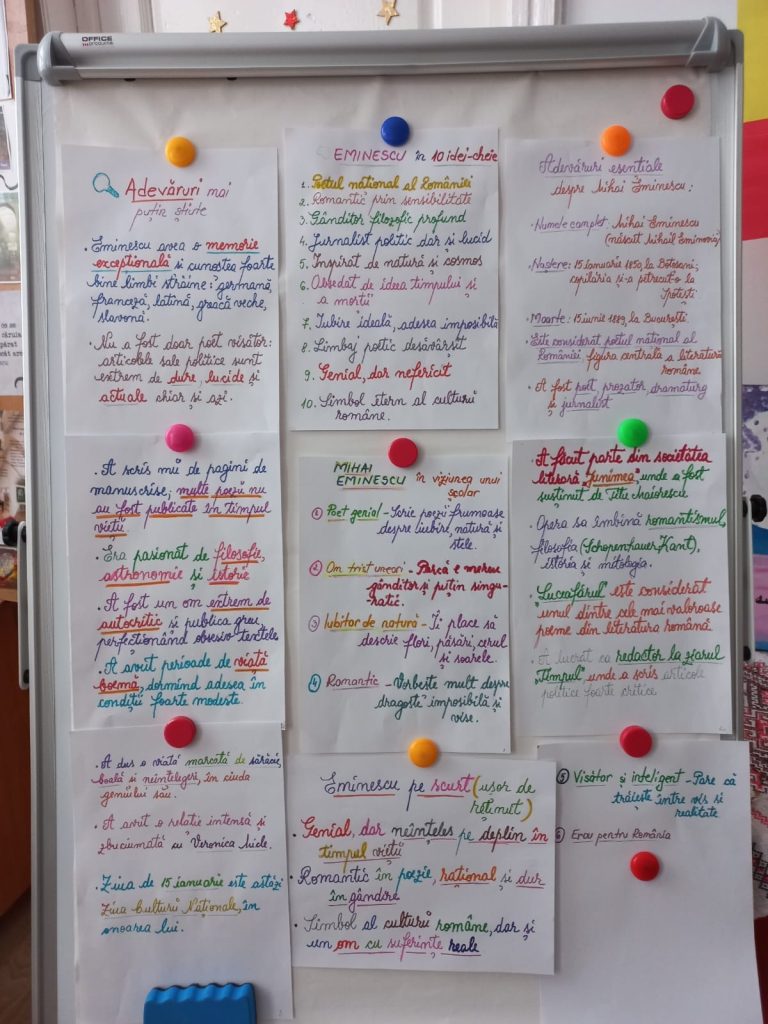 OFFICE
products
Adevăruri mai
puțin știute
• Eminescu avea o memorie
excepțională și cunoștea foarte
bine limbi străine: germană,
franceză, latină, greacă veche,
slavonă.
• Nu a fost doar poet visător:
articolele sale politice sunt
extrem de dure, lucide și
actuale chiar și azi.
• A scris mii de pagini de
manuscrise; multe poezii nu
au fost publicate în timpul
vieții
• Era pasionat de filosofie,
astronomie și istorie
• A fost un om extrem de
autocritic și publica greu,
perfecționând obsesiv textele
• A avut perioade de viață
boemă, dormind adesea în
condiții foarte modeste.
• A dus o viață marcată de sărăcie,
boală și neînțelegeri, în ciuda
geniului său.
• A avut o relație intensă și
zbuciumată cu Veronica Micle.
• Ziua de 15 ianuarie este astăzi
Ziua Culturii Naționale, în
onoarea lui.
EMINESCU în 10 idei-cheie
1. Poetul național al României
2. Romantic prin sensibilitate
3. Gânditor filozofic profund
4. Jurnalist politic dar și lucid
5. Inspirat de natură și cosmos
6. Obsedat de ideea timpului și
a morții
7. Iubire ideală, adesea imposibilă
8. Limbaj poetic desăvârșit
9. Genial, dar nefericit
10. Simbol etern al culturii
române.
MIHAI
EMINESCU în viziunea unui
școlar
1 Poet genial - Scrie poezii frumoase
despre iubire, natură și
stele.
2 Om trist uneori - Parcă e mereu
gânditor și puțin singu-
ratic.
3 Iubitor de natură - Îi place să
descrie flori, păsări, cerul
și soarele.
4 Romantic - Vorbește mult despre
dragoste imposibilă și
vise.
Eminescu pe scurt (ușor de
reținut)
• Genial, dar neînțeles pe deplin în
timpul vieții
• Romantic în poezie, rațional și dur
în gândire
• Simbol al culturii române, dar și
un om cu suferințe reale
Adevăruri esențiale
despre Mihai Eminescu:
• Numele complet: Mihai Eminescu
(născut Mihail Eminovici)
• Naștere: 15 ianuarie 1850, la Botoșani;
copilăria și-a petrecut-o la
Ipotești
• Moarte: 15 iunie 1889, la București.
• Este considerat poetul național al
României, figura centrală a literaturii
române
• A fost poet, prozator, dramaturg
și jurnalist
• A făcut parte din societatea
literară „Junimea", unde a fost
susținut de Titu Maiorescu
• Opera sa îmbină romantismul,
filosofia (Schopenhauer, Kant),
istoria și mitologia.
• „Luceafărul" este considerat
unul dintre cele mai valoroase
poeme din literatura română.
• A lucrat ca redactor la ziarul
„Timpul" unde a scris articole
politice foarte critice
5 Visător și inteligent - Pare că
trăiește între vis și
realitate
6 Erou pentru România